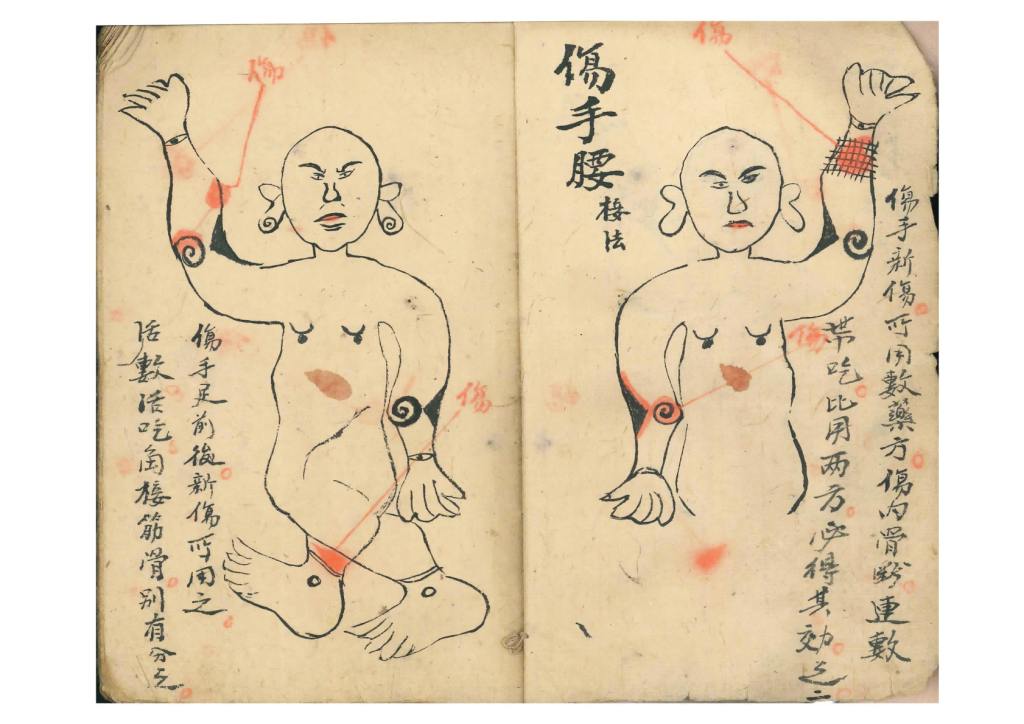 傷
傷手新傷所用數藥方傷内骨連數
帶吃比用两方必得其効之二
傷
傷手腰
接法
傷
傷
傷手足前後新傷所用之
活數活吃接筋骨別有分之